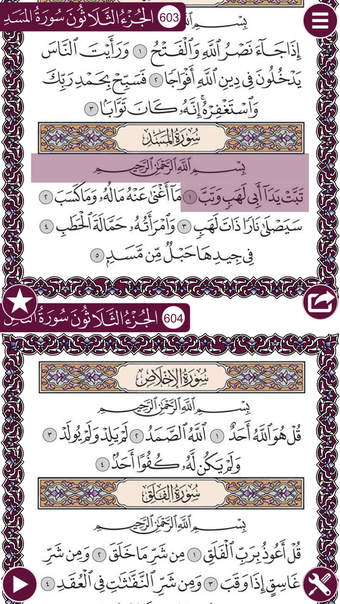 الجُزْءُ الثَّلَاثُونَ سُورَةُ المَسَدِ 603
بِسْمِ اللَّهِ
إِذَا جَآءَ نَصْرُ اللَّهِ وَالْفَتْحُ ١ وَرَأَيْتَ النَّاسَ
يَدْخُلُونَ فِي دِينِ اللَّهِ أَفْوَاجًا ٢ فَسَبِّحْ بِحَمْدِ رَبِّكَ
وَاسْتَغْفِرْهُ إِنَّهُ كَانَ تَوَّابًا ٣
سُورَةُ المَسَدِ
بِسْمِ اللَّهِ الرَّحْمَٰنِ الرَّحِيمِ
تَبَّتْ يَدَآ أَبِي لَهَبٍ وَتَبَّ ١ مَآ أَغْنَىٰ عَنْهُ مَالُهُ وَمَا كَسَبَ ٢
سَيَصْلَىٰ نَارًا ذَاتَ لَهَبٍ ٣ وَامْرَأَتُهُ حَمَّالَةَ الْحَطَبِ ٤
فِي جِيدِهَا حَبْلٌ مِّن مَّسَدٍ ٥
الجُزْءُ الثَّلَاثُونَ سُورَةُ 604
سُورَةُ الإِخْلَاصِ
بِسْمِ اللَّهِ الرَّحْمَٰنِ الرَّحِيمِ
قُلْ هُوَ اللَّهُ أَحَدٌ ١ اللَّهُ الصَّمَدُ ٢ لَمْ يَلِدْ وَلَمْ يُولَدْ ٣
وَلَمْ يَكُن لَّهُ كُفُوًا أَحَدٌ ٤
سُورَةُ الفَلَقِ
بِسْمِ اللَّهِ الرَّحْمَٰنِ الرَّحِيمِ
قُلْ أَعُوذُ بِرَبِّ الْفَلَقِ ١ مِن شَرِّ مَا خَلَقَ ٢ وَمِن شَرِّ
غَاسِقٍ إِذَا وَقَبَ ٣ وَمِن شَرِّ النَّفَّاثَاتِ فِي الْعُقَدِ ٤